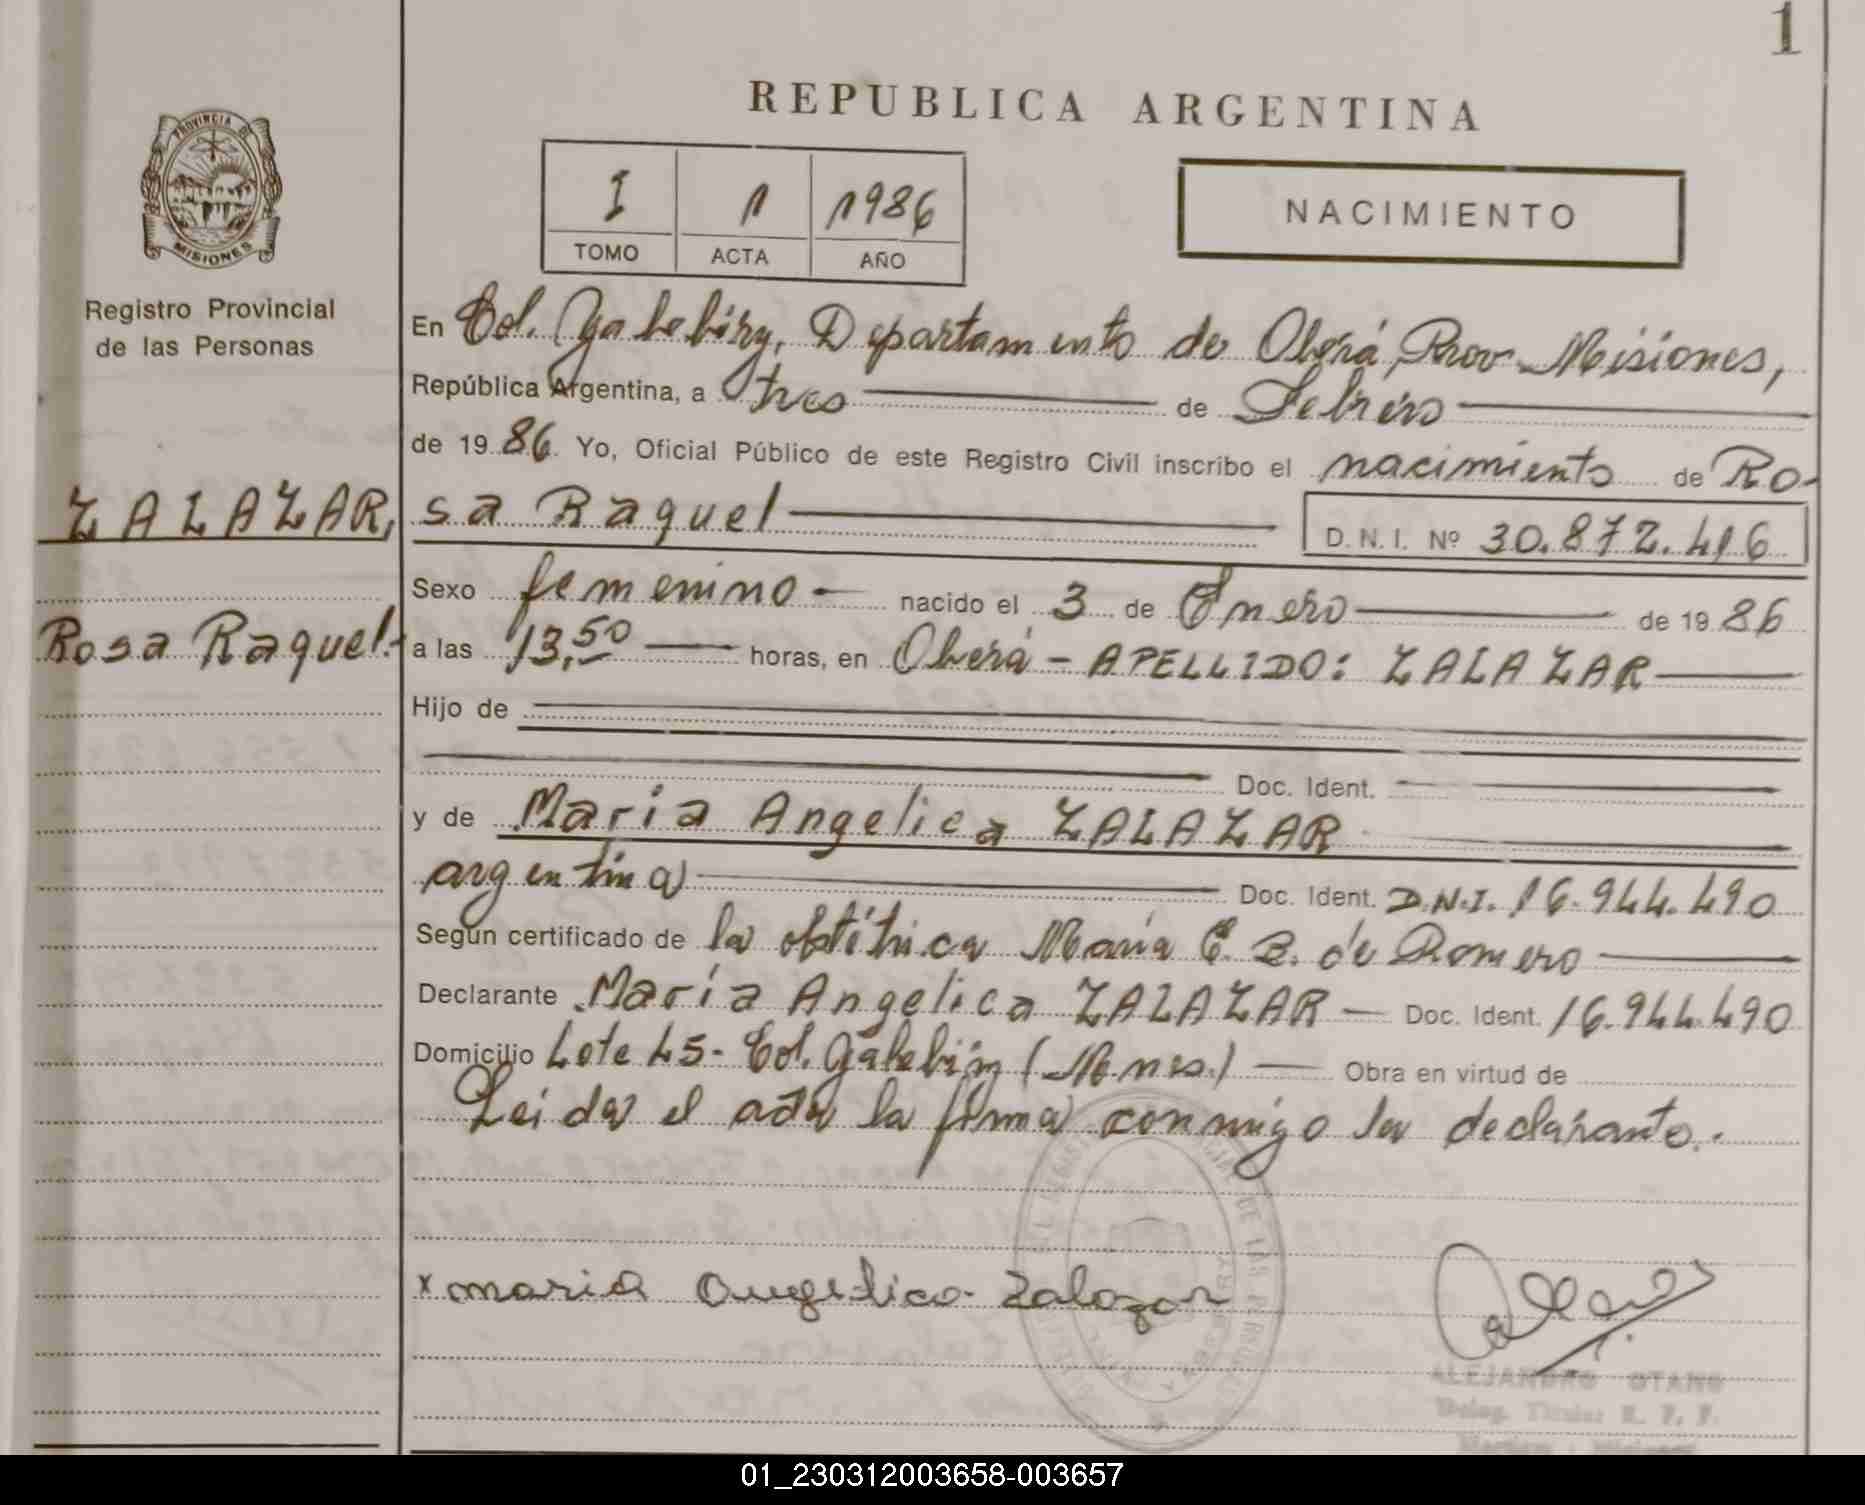 1
REPUBLICA ARGENTINA
PROVINCIA DE
MISIONES
I 1 1986
TOMO ACTA AÑO
NACIMIENTO
Registro Provincial
de las Personas
En Col. Yabebiry, Departamento de Oberá, Prov. Misiones,
República Argentina, a tres de Febrero
de 19 86 Yo, Oficial Público de este Registro Civil inscribo el nacimiento de Ro-
ZALAZAR, sa Raquel D.N.I. Nº 30.872.416
Sexo femenino - nacido el 3 de Enero de 19 86
Rosa Raquel.- a las 13,50 horas, en Oberá - APELLIDO: ZALAZAR
Hijo de
Doc. Ident.
y de Maria Angelica ZALAZAR
argentina Doc. Ident. D.N.I. 16.944.490
Según certificado de la obstétrica María E. B. de Romero
Declarante María Angelica ZALAZAR - Doc. Ident. 16.944.490
Domicilio Lote 45- Col. Yabebiry (Mnes.) Obra en virtud de
Leida el acta la firma conmigo la declarante.
x maria Angelica Zalazar
ALEJANDRO OTANO
01_230312003658-003657